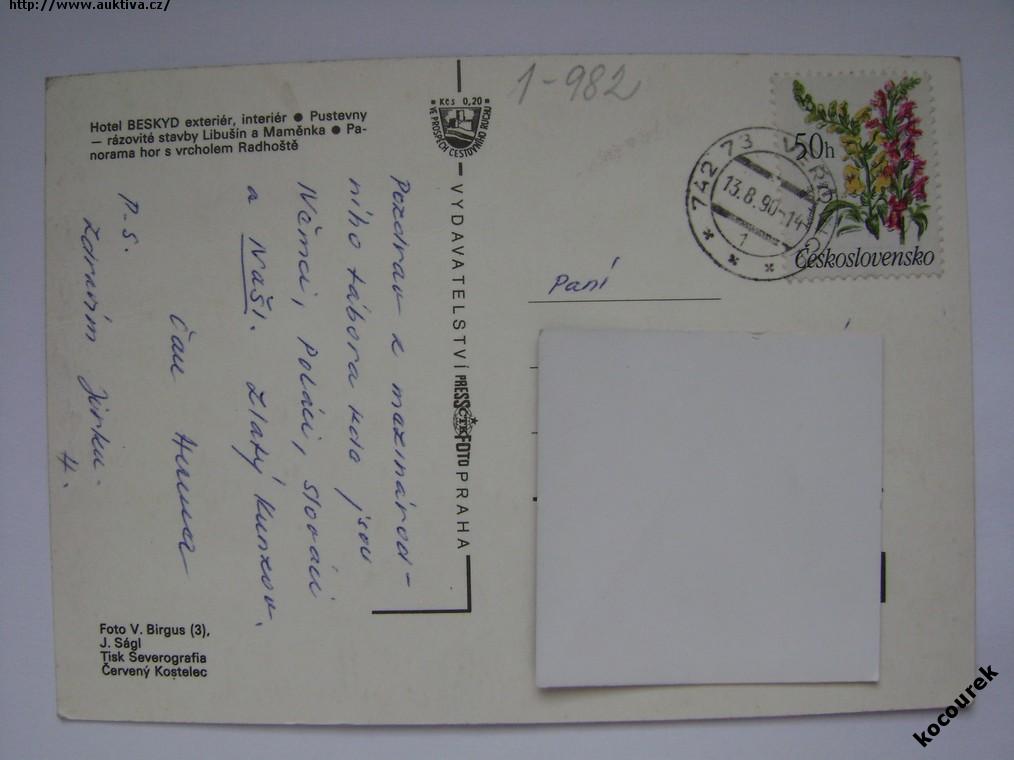 http://www.auktiva.cz/
1-982
Hotel BESKYD exteriér, interiér ● Pustevny
— rázovité stavby Libušín a Maměnka ● Pa-
norama hor s vrcholem Radhoště
Kčs 0,20
VE PROSPĚCH CESTOVNÍHO RUCHU
50h
Československo
742 73
13.8.90-14
1
VYDAVATELSTVÍ PRESSFOTO PRAHA
ČTK
Paní
Pozdrav z mezinárod-
ního tábora kde jsou
Němci, Poláci, Slováci
a Naši. Zlatý Kunzov.
Čau
P.S.
Zdravím Jirku.
H.
Foto V. Birgus (3),
J. Ságl
Tisk Severografia
Červený Kostelec
kocourek